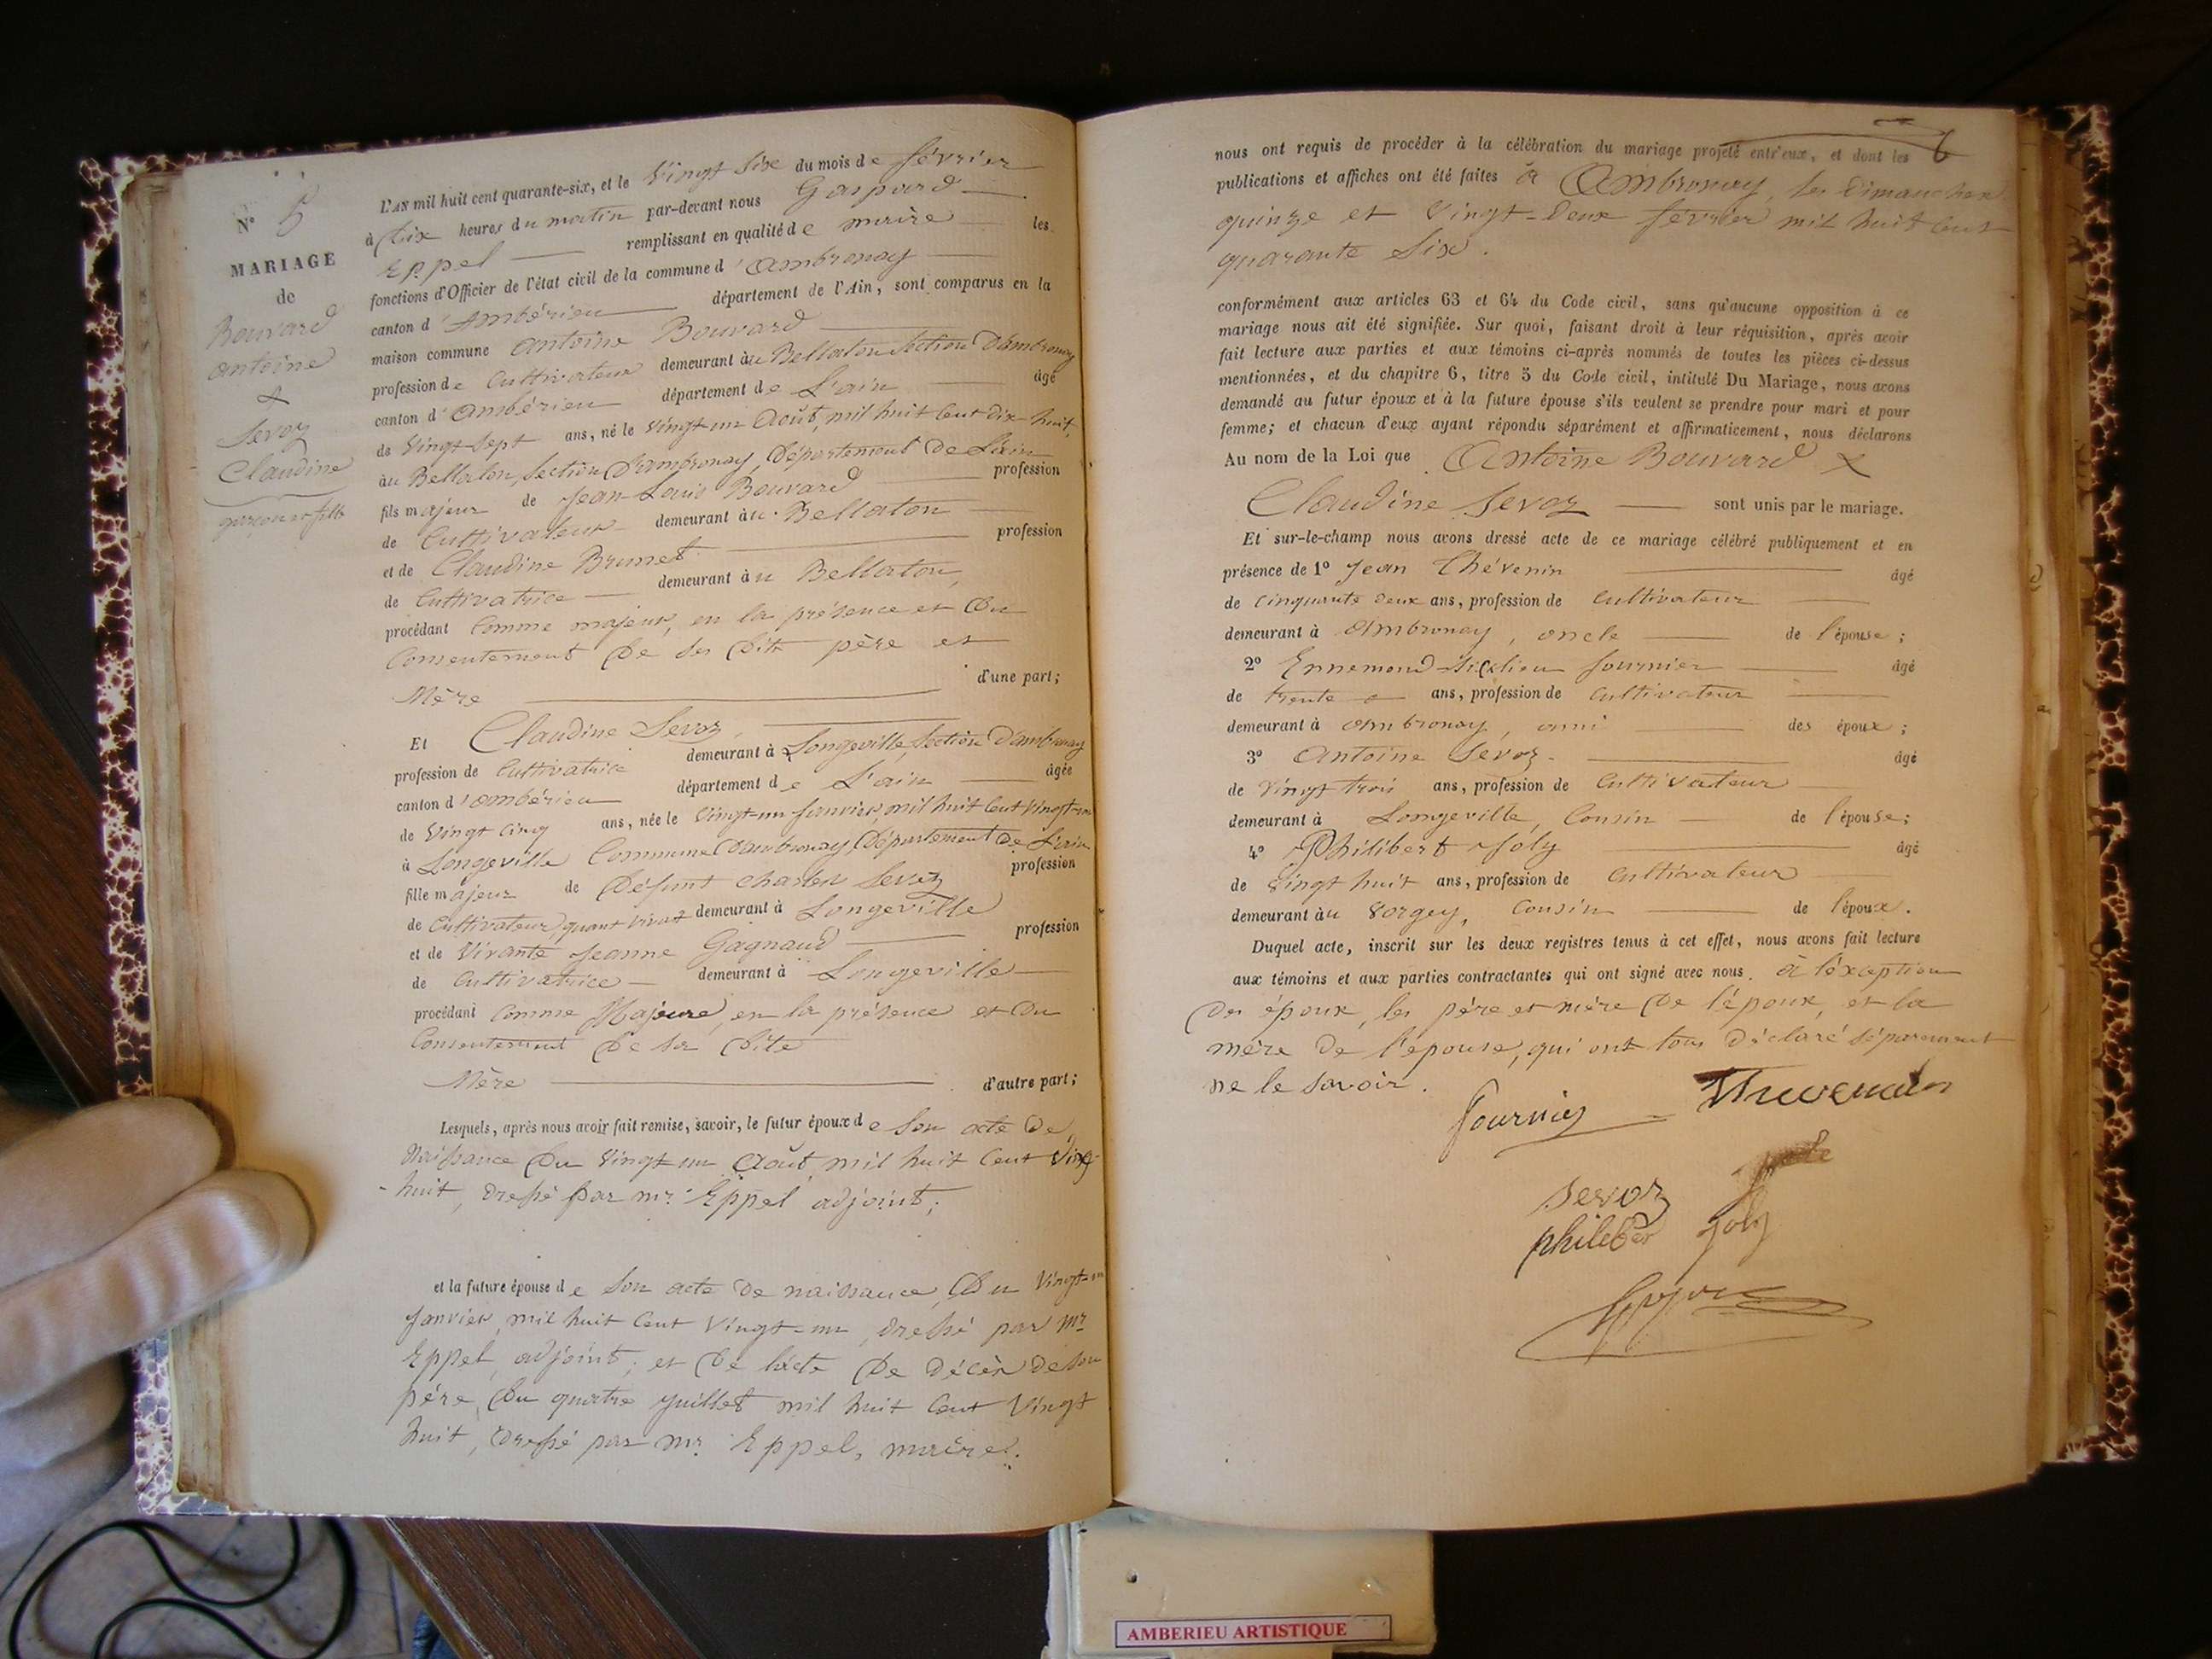 N° 5
MARIAGE
de
Bouvard
antoine
&
Sevoz
Claudine
garçon et fille
L'AN mil huit cent quarante-six, et le Vingt Six du mois de février
à dix heures du matin par-devant nous Gaspard
Eppel remplissant en qualité de maire les
fonctions d'Officier de l'état civil de la commune d'ambronay
canton d'Ambérieu département de l'Ain, sont comparus en la
maison commune antoine Bouvard
profession de Cultivateur demeurant au Bellaton Section d'ambronay
canton d'ambérieu département de L'ain âgé
de Vingt-Sept ans, né le Vingt-un Août, mil huit Cent dix-huit,
au Bellaton, Section D'ambronay, Département De L'ain
fils majeur de Jean-Louis Bouvard profession
de Cultivateur demeurant au Bellaton
et de Claudine Brunet profession
de Cultivatrice demeurant au Bellaton,
procédant Comme majeur, en la présence et Du
Consentement De Ses Dits père et
Mère d'une part;
Et Claudine Sevoz,
profession de Cultivatrice demeurant à Longeville, Section D'ambronay
canton d'ambérieu département de L'ain âgée
de Vingt Cinq ans, née le Vingt-un Janvier, mil huit Cent Vingt-un
à Longeville Commune D'ambronay, Département De L'ain
fille majeur de Défunt Charles Sevoz profession
de Cultivateur, quant vivat demeurant à Longeville
et de Vivante Jeanne Gagnaud profession
de Cultivatrice demeurant à Longeville
procédant Comme Majeure, en la présence et Du
Consentement De Sa Dite
Mère d'autre part;
Lesquels, après nous avoir fait remise, savoir, le futur époux de Son acte De
Naissance Du Vingt-un Août mil huit Cent Dix-
-huit, dressé par mr Eppel adjoint;
et la future épouse de Son acte De naissance, Du Vingt-un
Janvier, mil huit Cent Vingt-un, dressé par Mr
Eppel, adjoint; et De l'acte De Décès De Son
père, Du quatre Juillet mil huit Cent Vingt
huit, dressé par Mr Eppel, maire.
6
nous ont requis de procéder à la célébration du mariage projeté entr'eux, et dont les
publications et affiches ont été faites à Ambronay, les Dimanches
quinze et Vingt-Deux février mil huit Cent
quarante Six.
conformément aux articles 63 et 64 du Code civil, sans qu'aucune opposition à ce
mariage nous ait été signifiée. Sur quoi, faisant droit à leur réquisition, après avoir
fait lecture aux parties et aux témoins ci-après nommés de toutes les pièces ci-dessus
mentionnées, et du chapitre 6, titre 5 du Code civil, intitulé Du Mariage, nous avons
demandé au futur époux et à la future épouse s'ils veulent se prendre pour mari et pour
femme; et chacun d'eux ayant répondu séparément et affirmativement, nous déclarons
Au nom de la Loi que Antoine Bouvard &
Claudine Sevoz sont unis par le mariage.
Et sur-le-champ nous avons dressé acte de ce mariage célébré publiquement et en
présence de 1° Jean Thévenin âgé
de Cinquante Deux ans, profession de Cultivateur
demeurant à Ambronay, oncle de l'épouse;
2° Ennemond fournier âgé
de trente ans, profession de Cultivateur
demeurant à Ambronay, ami des époux;
3° Antoine Sevoz. âgé
de Vingt trois ans, profession de Cultivateur
demeurant à Longeville, Cousin de l'épouse;
4° Philibert Joly âgé
de Vingt huit ans, profession de Cultivateur
demeurant au Vorgey, Cousin de l'époux.
Duquel acte, inscrit sur les deux registres tenus à cet effet, nous avons fait lecture
aux témoins et aux parties contractantes qui ont signé avec nous. à l'exception
Des époux, les père et mère De l'époux, et la
mère De l'épouse, qui ont tous Déclaré Séparement
ne le Savoir.
fournier
sevoz
philiber joly
AMBERIEU ARTISTIQUE